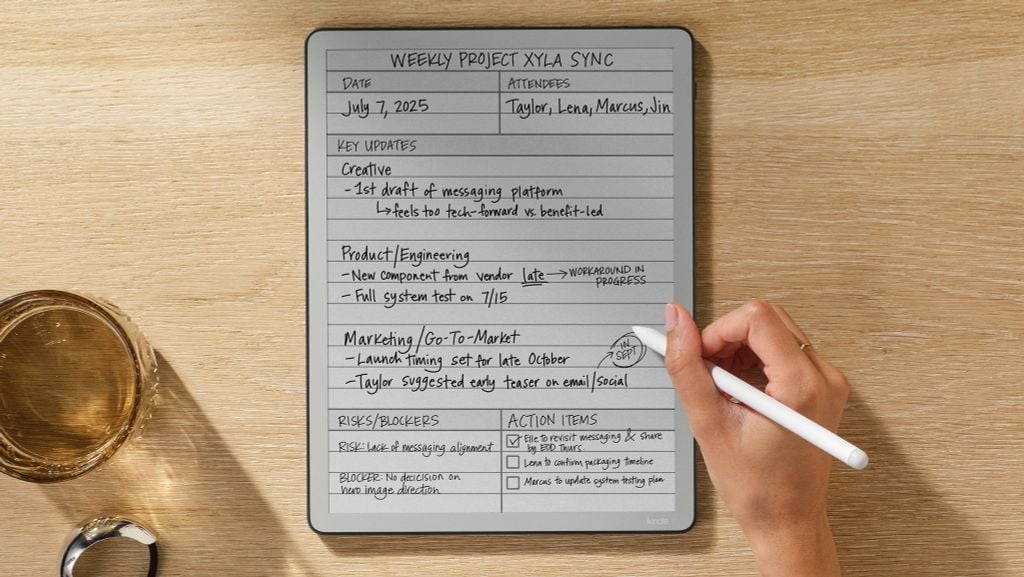 WEEKLY PROJECT XYLA SYNC
DATE
July 7, 2025
ATTENDEES
Taylor, Lena, Marcus, Jin
KEY UPDATES
Creative
- 1st draft of messaging platform
↳ feels too tech-forward vs. benefit-led
Product/Engineering
- New component from vendor late → WORKAROUND IN
PROGRESS
- Full system test on 7/15
Marketing/Go-To-Market
- Launch timing set for late October
- Taylor suggested early teaser on email/social
IN
SEPT
RISKS/BLOCKERS
RISK: Lack of messaging alignment
BLOCKER: No decicision on
hero image direction
ACTION ITEMS
Elle to revisit messaging & share
by EOD Thurs.
Lena to confirm packaging timeline
Marcus to update system testing plan
kindle